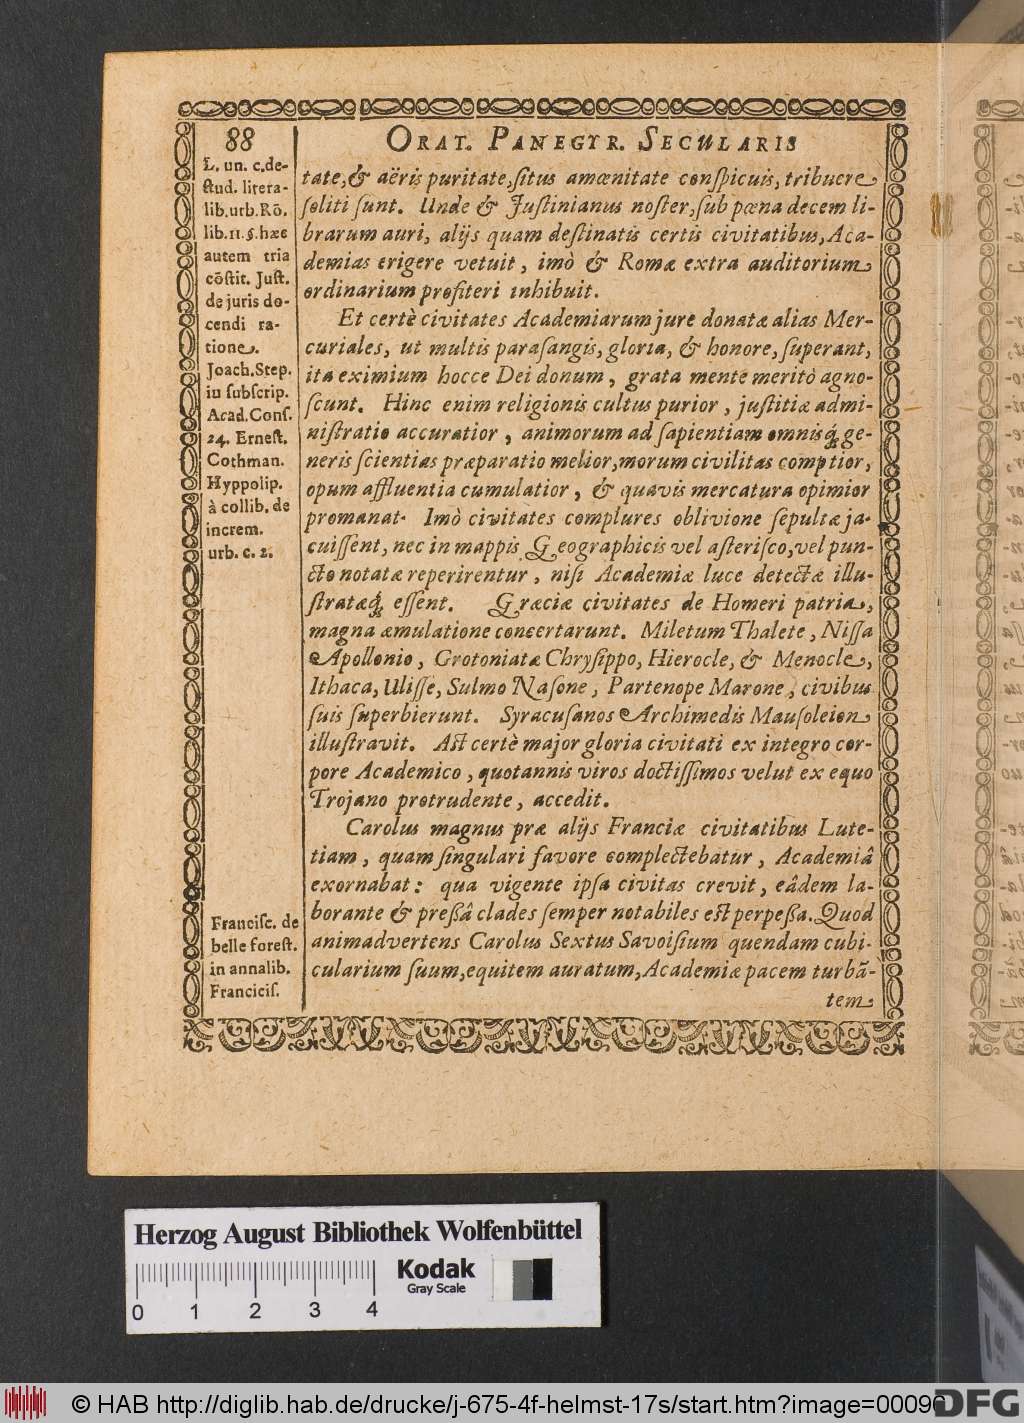 88
ORAT. PANEGYR. SECULARIS
L. un. c. de-
stud. litera-
lib. urb. Rō.
lib. 11. §. hæc
autem tria
cōstit. Just.
de juris do-
cendi ra-
tione.
Joach. Step.
in subscrip.
Acad. Cons.
24. Ernest.
Cothman.
Hyppolip.
à collib. de
increm.
urb. c. 2.
tate, & aëris puritate, situs amœnitate conspicuis, tribuere
soliti sunt. Unde & Justinianus noster, sub pœna decem li-
brarum auri, alijs quam destinatis certis civitatibus, Aca-
demias erigere vetuit, imò & Romæ extra auditorium
ordinarium profiteri inhibuit.
Et certè civitates Academiarum jure donatæ alias Mer-
curiales, ut multis parasangis, gloria, & honore, superant,
ita eximium hocce Dei donum, grata mente meritò agno-
scunt. Hinc enim religionis cultus purior, justitiæ admi-
nistratio accuratior, animorum ad sapientiam omnisq́; ge-
neris scientias præparatio melior, morum civilitas comptior,
opum affluentia cumulatior, & quavis mercatura opimior
promanat. Imò civitates complures oblivione sepultæ ja-
cuissent, nec in mappis Geographicis vel asterisco, vel pun-
cto notatæ reperirentur, nisi Academiæ luce detectæ illu-
stratæq́; essent. Græciæ civitates de Homeri patria,
magna æmulatione concertarunt. Miletum Thalete, Nissa
Apollonio, Grotoniatæ Chrysippo, Hierocle, & Menocle,
Ithaca, Ulisse, Sulmo Nasone, Partenope Marone, civibus
suis superbierunt. Syracusanos Archimedis Mausoleion
illustravit. Ast certè major gloria civitati ex integro cor-
pore Academico, quotannis viros doctissimos velut ex equo
Trojano protrudente, accedit.
Carolus magnus præ alijs Franciæ civitatibus Lute-
tiam, quam singulari favore complectebatur, Academiâ
exornabat: qua vigente ipsa civitas crevit, eâdem la-
borante & preßâ clades semper notabiles est perpeßa. Quod
animadvertens Carolus Sextus Savoisium quendam cubi-
cularium suum, equitem auratum, Academiæ pacem turbā-
tem
Francisc. de
belle forest.
in annalib.
Francicis.
Herzog August Bibliothek Wolfenbüttel
Kodak
Gray Scale
0 1 2 3 4
© HAB http://diglib.hab.de/drucke/j-675-4f-helmst-17s/start.htm?image=00096
DFG